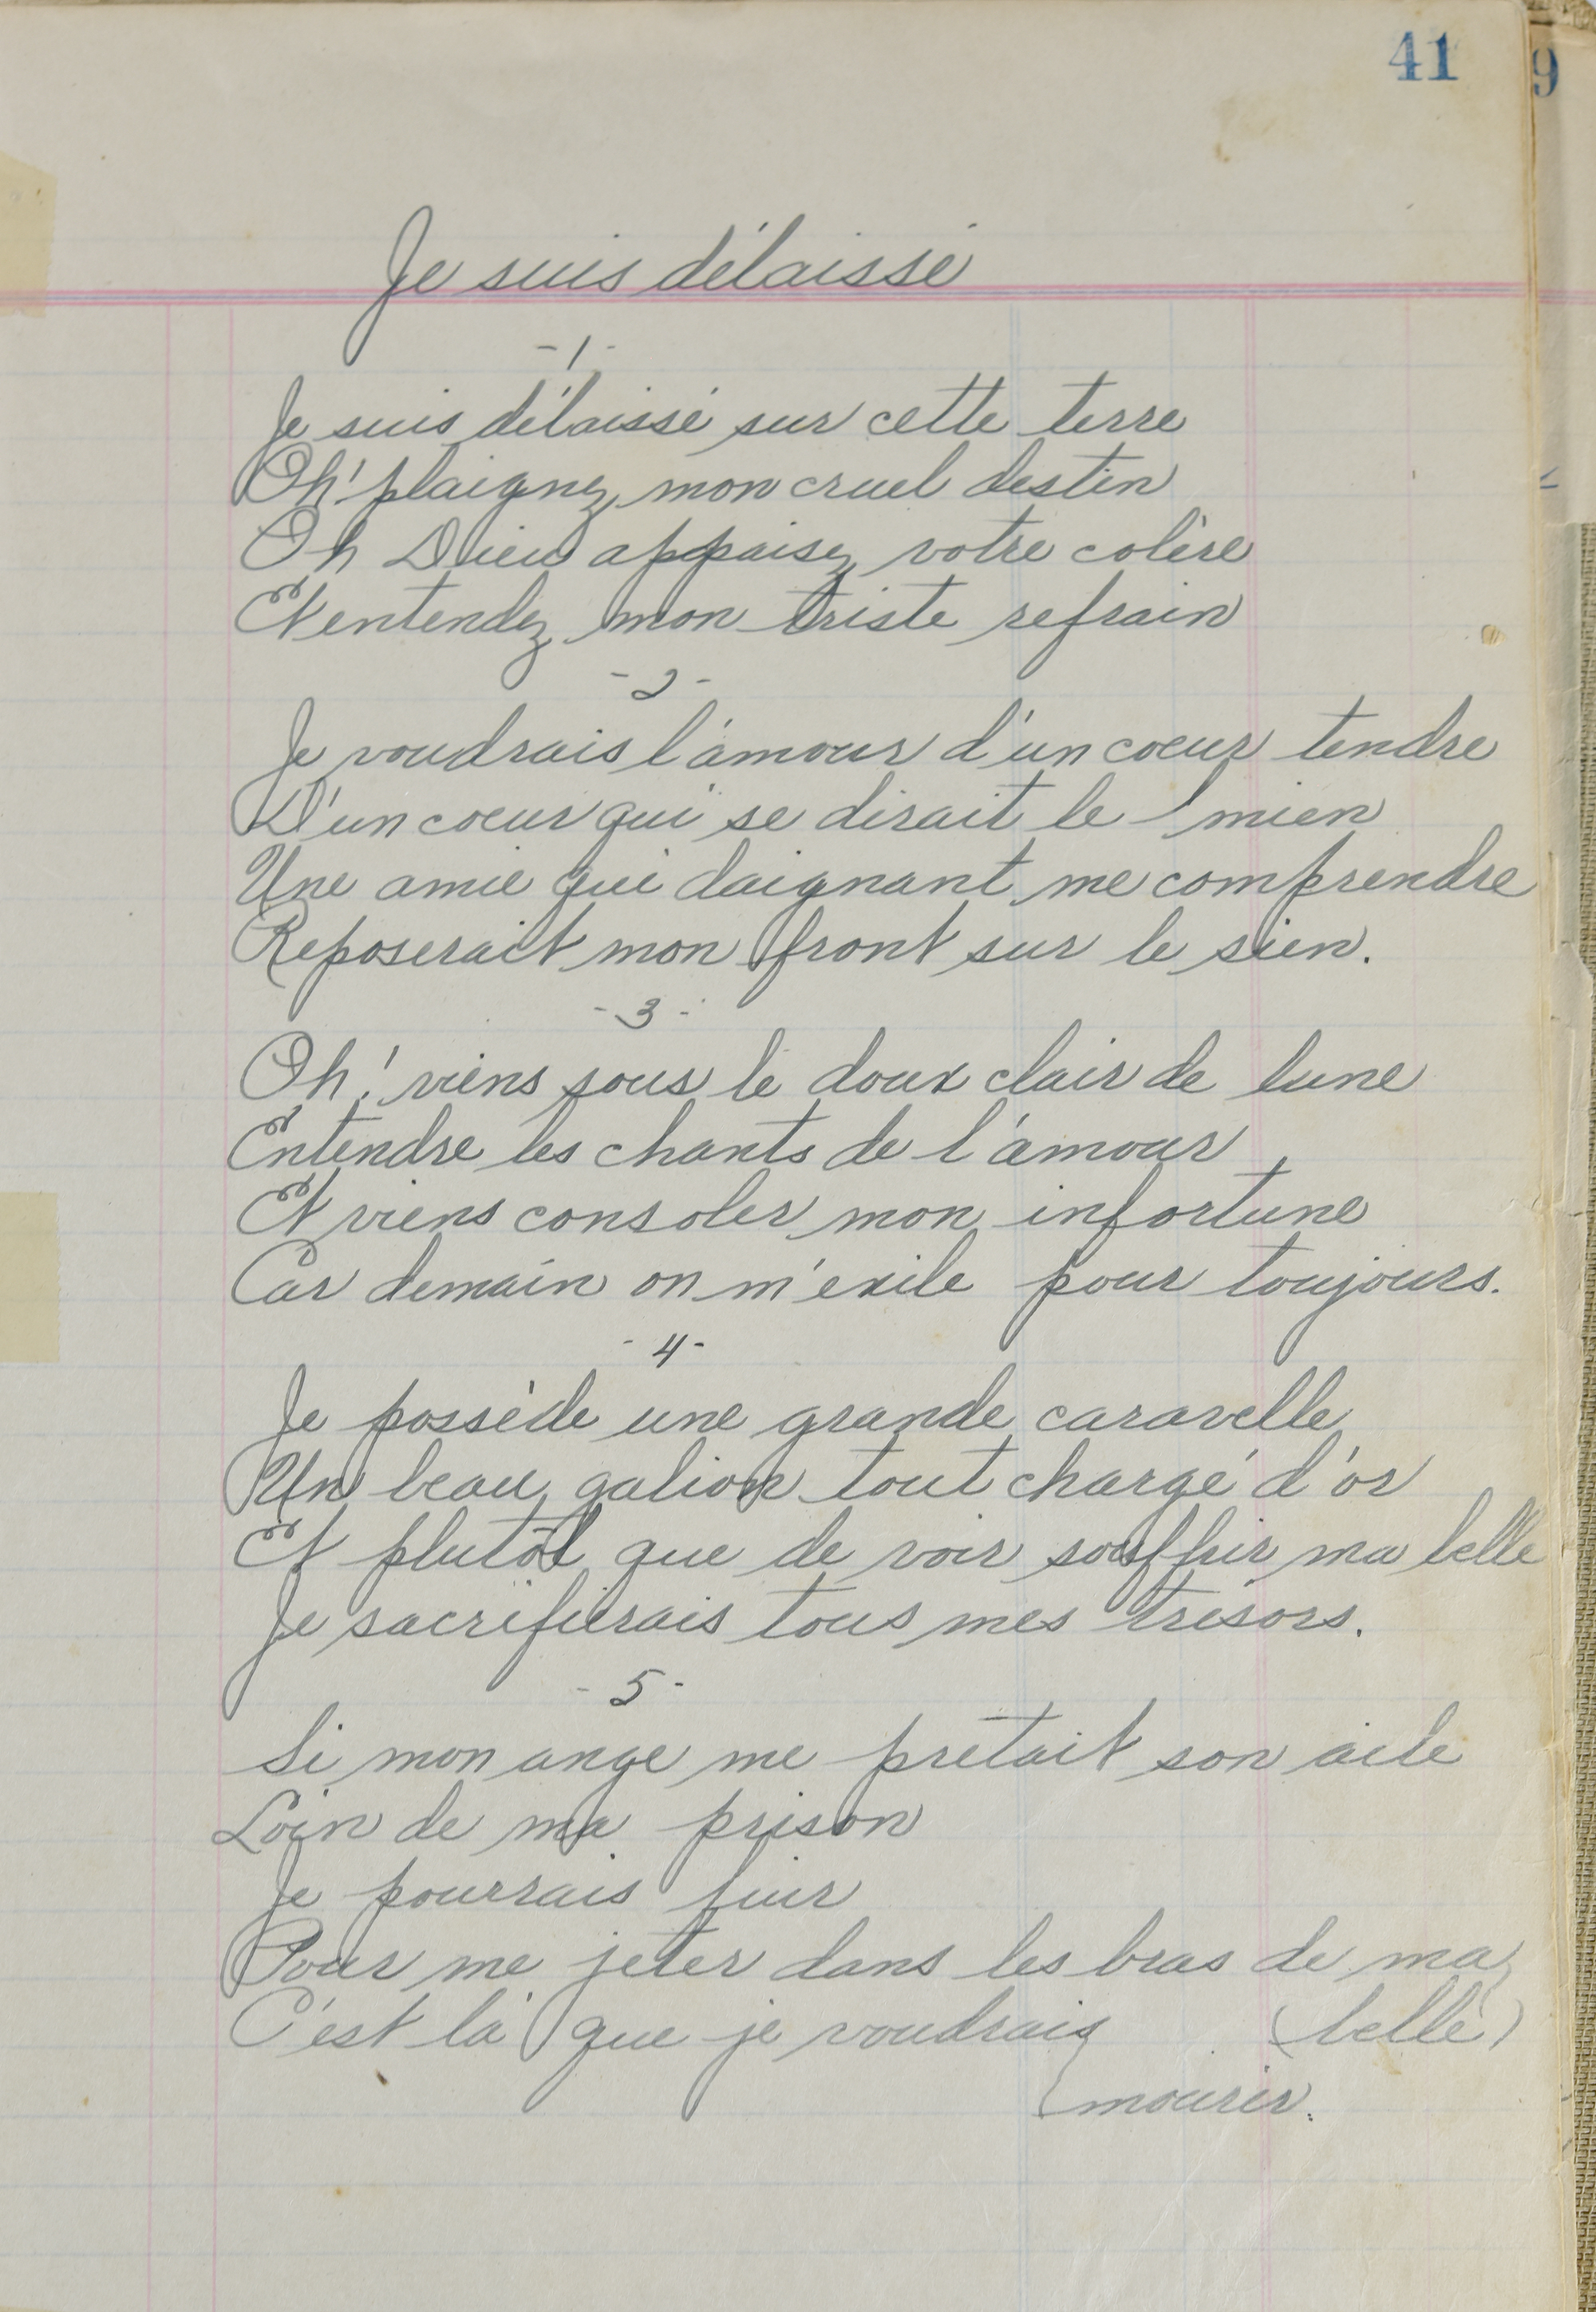 41
9
Je suis délaissé
-1-
Je suis délaissé sur cette terre
Oh! plaignez mon cruel destin
Oh Dieu appaisez votre colère
Et entendez mon triste refrain
-2-
Je voudrais l'amour d'un coeur tendre
D'un coeur qui se dirait le mien
Une amie qui daignant me comprendre
Reposerait mon front sur le sien.
-3-
Oh! viens sous le doux clair de lune
Entendre les chants de l'amour
Et viens consoler mon infortune
Car demain on m'exile pour toujours.
-4-
Je possède une grande caravelle
Un beau galion tout chargé d'or
Et plutôt que de voir souffrir ma belle
Je sacrifierais tous mes trésors.
-5-
Si mon ange me prêtait son aile
Loin de ma prison
Je pourrais fuir
Pour me jeter dans les bras de ma
C'est là que je voudrais (belle)
(mourir.